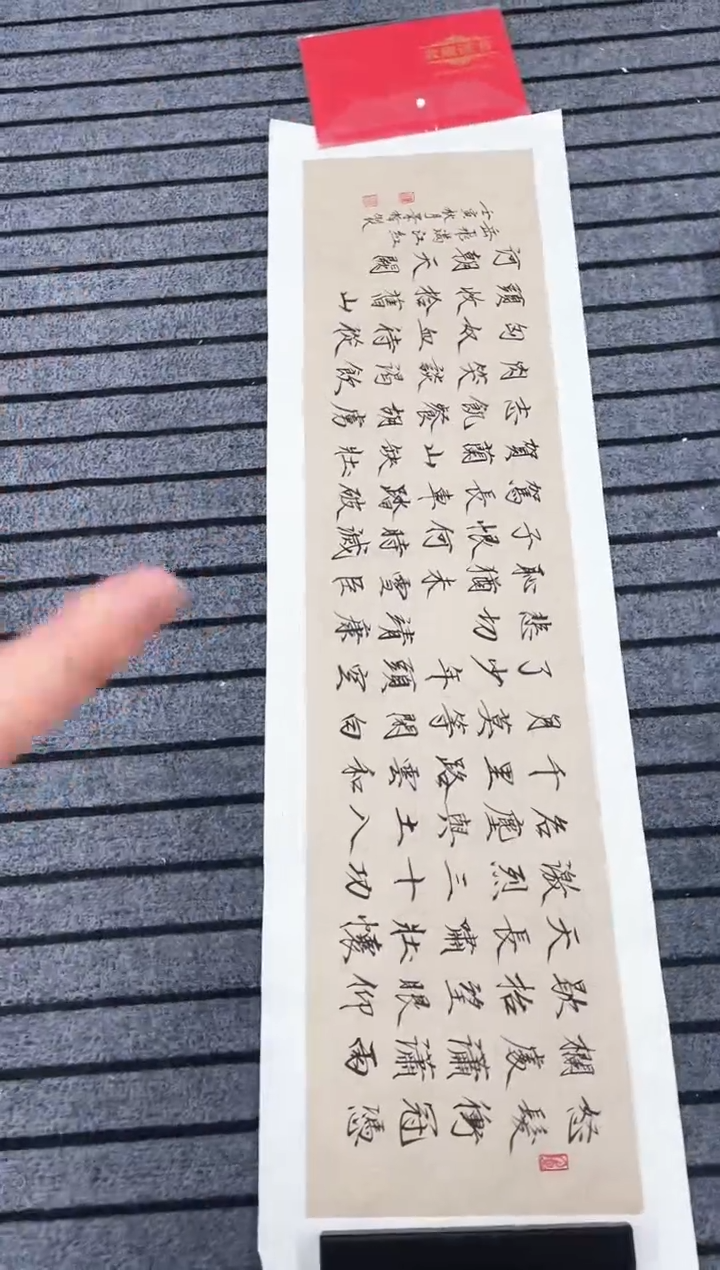 怒髮衝冠憑
欄處瀟瀟雨
歇抬望眼仰
天長嘯壯懷
激烈三十功
名塵與土八
千里路雲和
月莫等閑白
了少年頭空
悲切靖康
恥猶未雪臣
子恨何時滅
駕長車踏破
賀蘭山缺壯
志飢餐胡虜
肉笑談渴飲
匈奴血待從
頭收拾舊山
河朝天闕
岳飛滿江紅
壬寅秋月
收藏证书